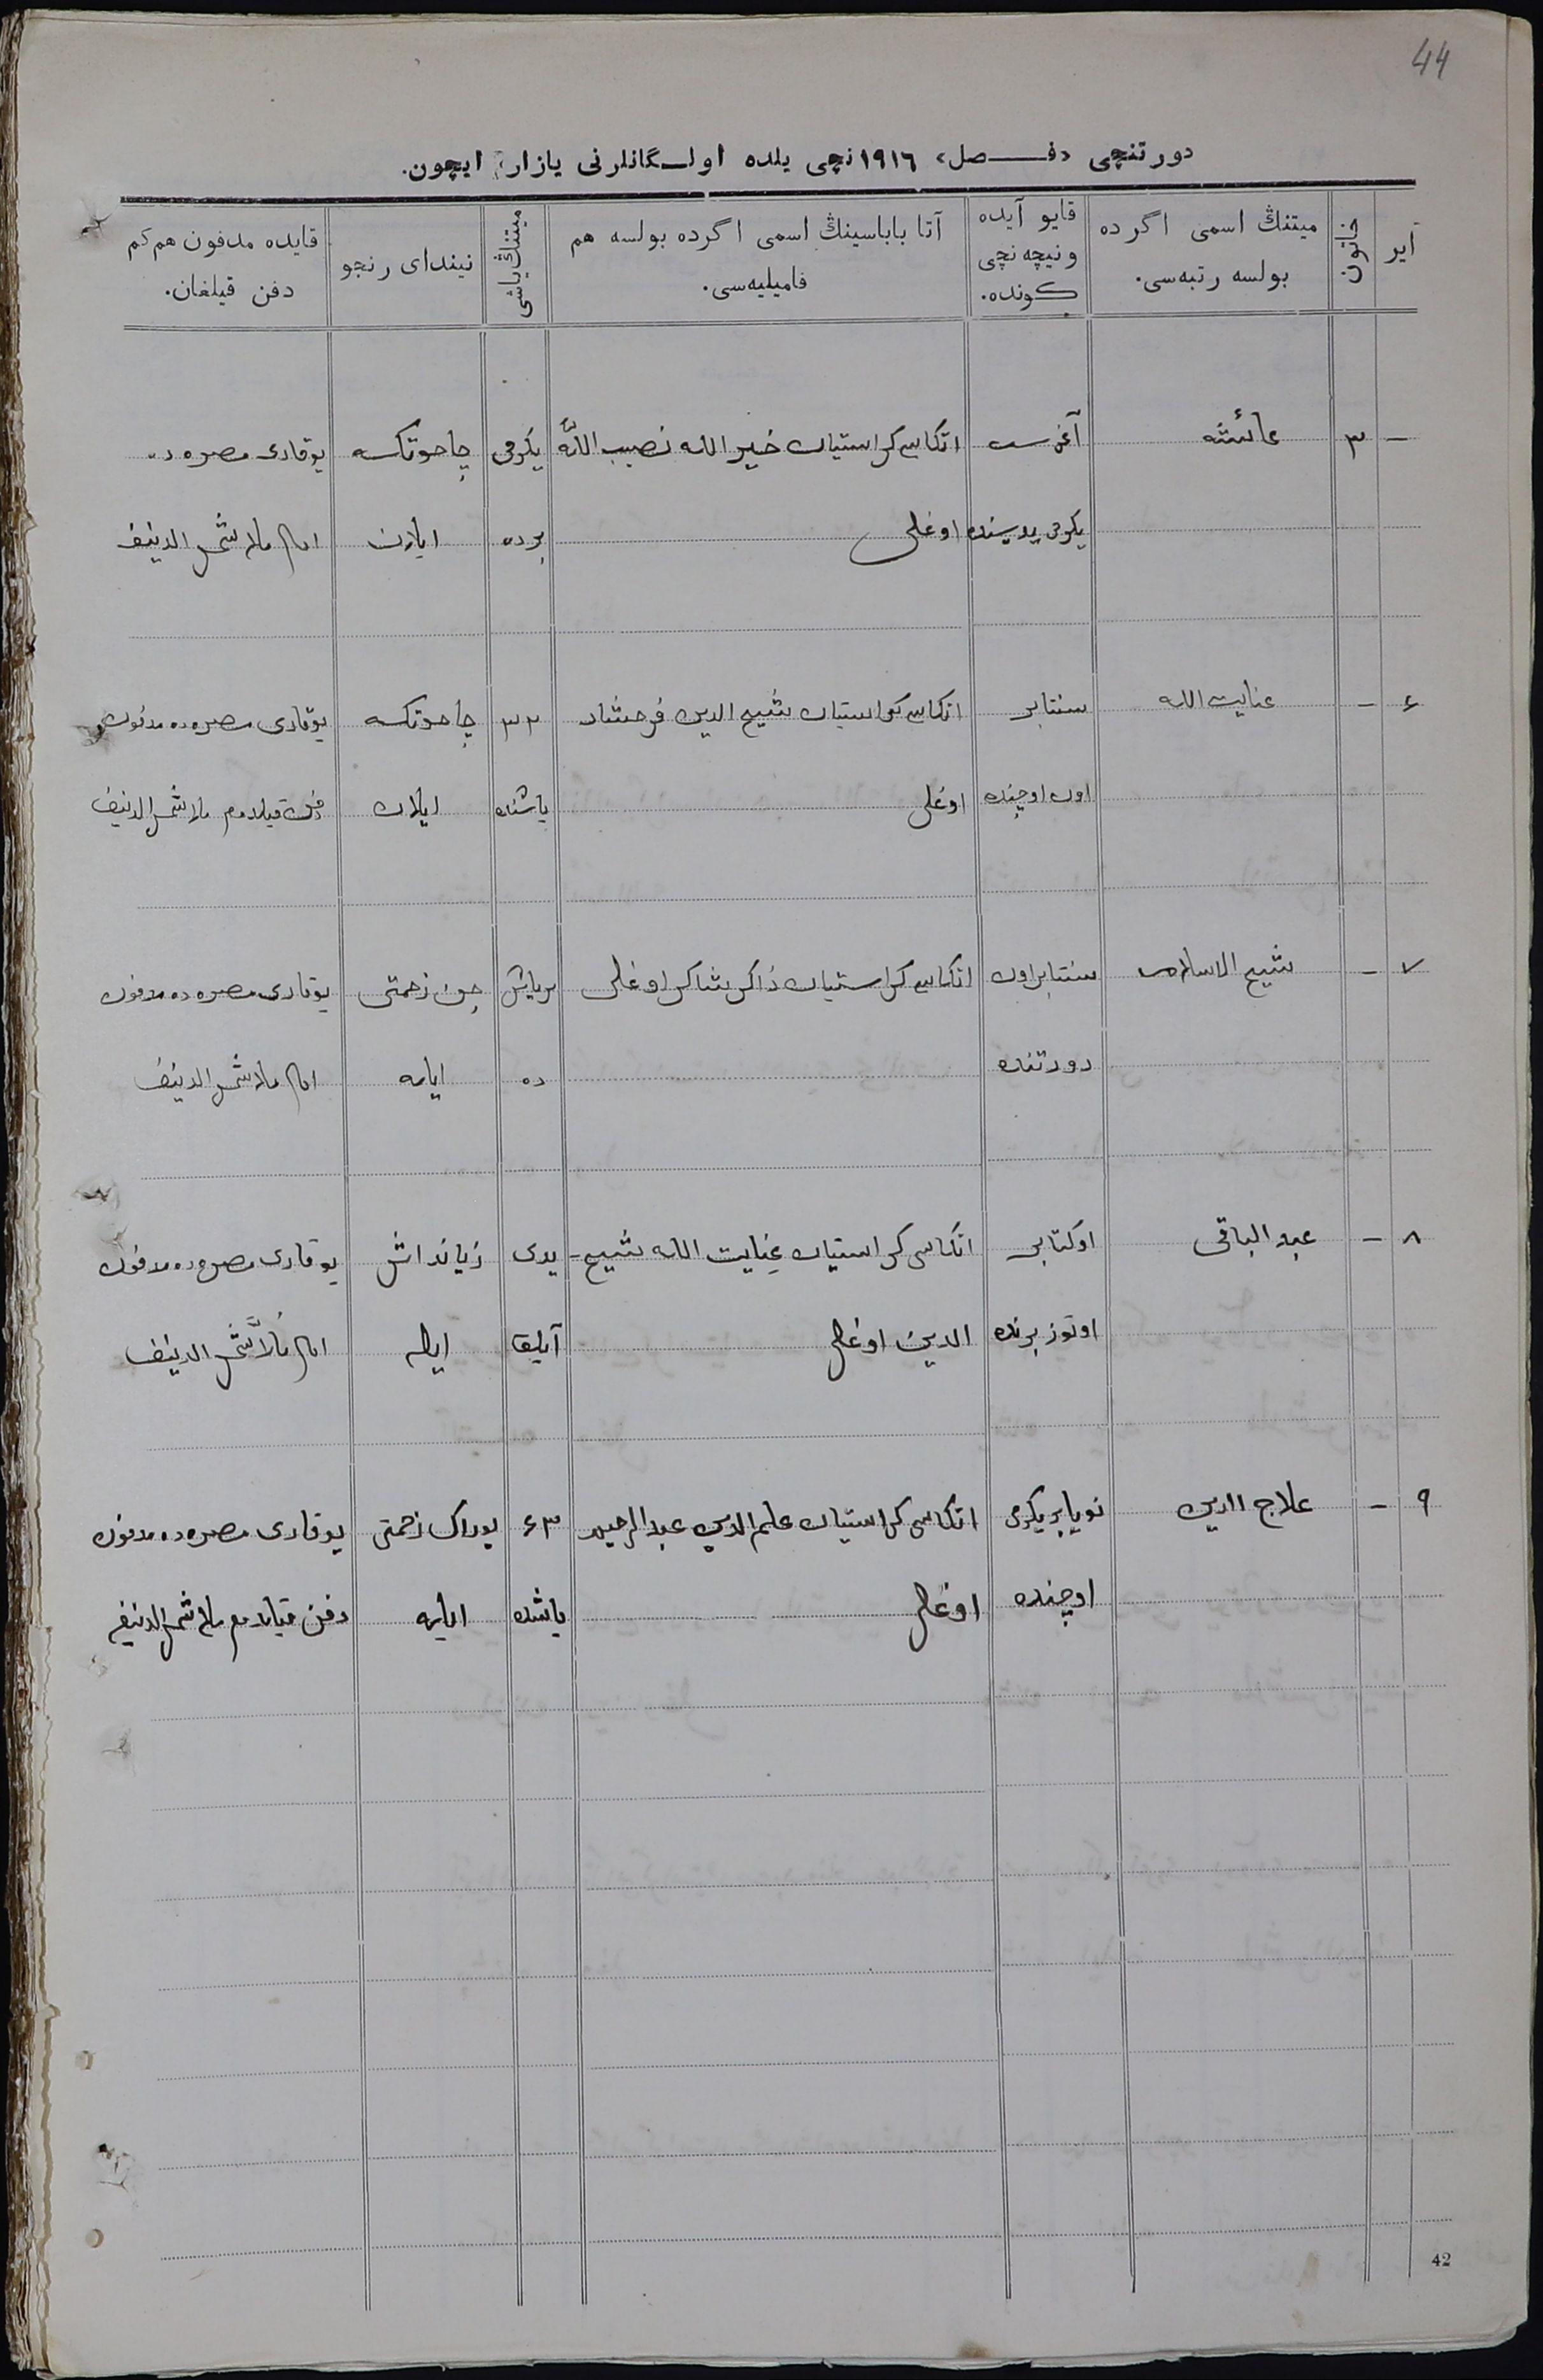 44
دورتنچی «فـــصل» ١٩١٦نچی یلده اولــگانلرنی یازار ایچون.
ایر
خاتون
میتنڭ اسمی اگرده
بولسه رتبه‌سی.
قایو آیده
و نیچه نچی
کونده.
آتا باباسینڭ اسمی اگرده بولسه هم
فامیلیه‌سی.
میتنڭ یاشی
نیندای رنجو
قایده مدفون هم کم
دفن قیلغان.
– ٣ عائشه آغوست اتکاسی کراستیان خیر الله نصیب اللّٰه یکرمی چاحوتکه یوقاری مصره ده
یکرمی یدیسنده اوغلی برده ایلان امام ملا شمس الدینف
٤ – عنایت الله سنتابر اتکاسی کراستیان شیح الدین فرحشاد ٣٣ چاحوتکه یوقاری مصره ده مدفون
اون اوچنده اوغلی یاشنده ایلان دفن قیلدم ملا شمس الدینف
٧ – شیح الاسلام سنتابر اون اتکاسی کراستیان ذاکر شاکر اوغلی بر یاش چن زحمتی یوقاری مصره ده مدفون
دورتنده ده ایله امام ملا شمس الدینف
٨ – عبد الباقی اوکتابر اتکاسی کراستیان عنایت الله شیح- یدی زیانداش یوقاری مصره ده مدفون
اوتوز برنده الدین اوغلی آیلق ایله امام ملا شمس الدینف
٩ – علاج الدین نویابر یکرمی اتکاسی کراستیان علم الدین عبد الرحیم ٤٣ یوراک زحمتی یوقاری مصره ده مدفون
اوچنده اوغلی یاشده ایله دفن قیلدم ملا شمس الدینف
42